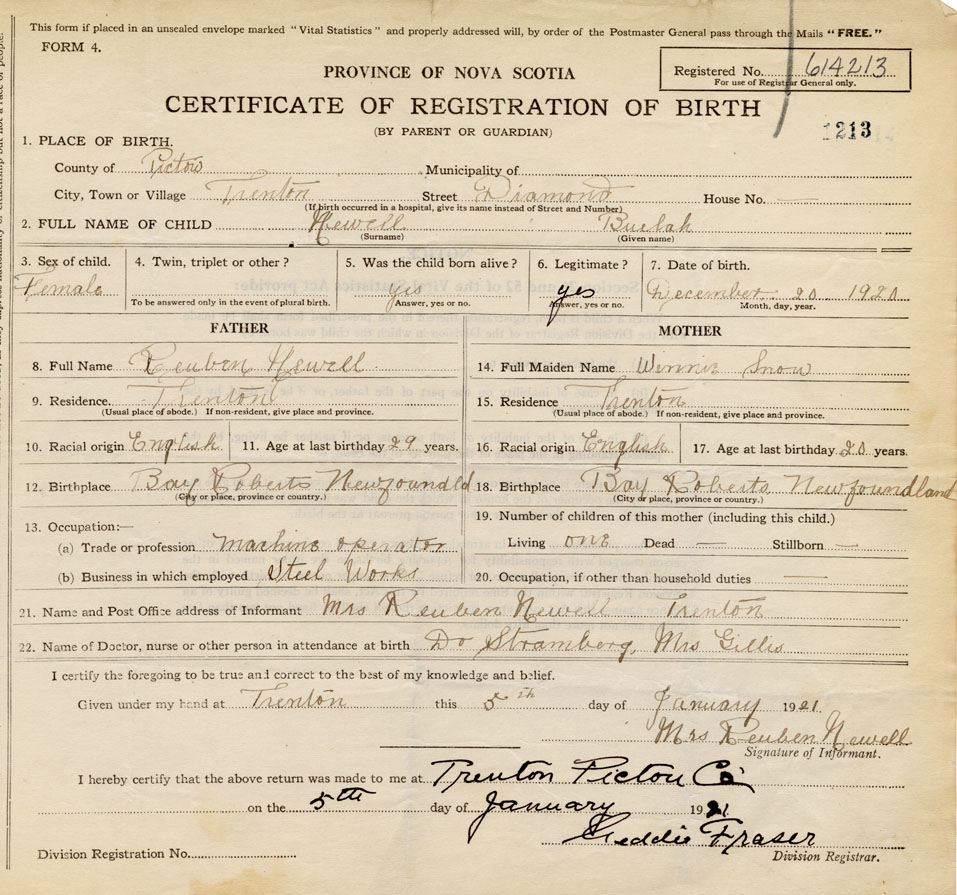 This form if placed in an unsealed envelope marked "Vital Statistics" and properly addressed will, by order of the Postmaster General pass through the Mails "FREE."
FORM 4.
PROVINCE OF NOVA SCOTIA
Registered No. 614213
For use of Registrar General only.
CERTIFICATE OF REGISTRATION OF BIRTH
(BY PARENT OR GUARDIAN)
1213
1. PLACE OF BIRTH.
County of Pictou Municipality of
City, Town or Village Trenton Street Diamond House No. —
(If birth occurred in a hospital, give its name instead of Street and Number)
2. FULL NAME OF CHILD Newell Beulah
(Surname) (Given name)
3. Sex of child. 4. Twin, triplet or other? 5. Was the child born alive? 6. Legitimate? 7. Date of birth.
Female yes yes December 20 1920
To be answered only in the event of plural birth. Answer, yes or no. Answer, yes or no. Month, day, year.
FATHER MOTHER
8. Full Name Reuben Newell 14. Full Maiden Name Winnie Snow
9. Residence. Trenton 15. Residence Trenton
(Usual place of abode.) If non-resident, give place and province. (Usual place of abode.) If non-resident, give place and province.
10. Racial origin English 11. Age at last birthday 29 years. 16. Racial origin English 17. Age at last birthday 20 years.
12. Birthplace Bay Roberts Newfoundld 18. Birthplace Bay Roberts Newfoundland
(City or place, province or country.) (City or place, province or country.)
13. Occupation:— 19. Number of children of this mother (including this child.)
(a) Trade or profession machine operator Living one Dead — Stillborn —
(b) Business in which employed Steel Works 20. Occupation, if other than household duties —
21. Name and Post Office address of Informant Mrs Reuben Newell Trenton
22. Name of Doctor, nurse or other person in attendance at birth Dr Stramberg, Mrs Gillis
I certify the foregoing to be true and correct to the best of my knowledge and belief.
Given under my hand at Trenton this 5th day of January 1921.
Mrs Reuben Newell
Signature of Informant.
I hereby certify that the above return was made to me at Trenton Pictou Co
on the 5th day of January 1921
Geddie Fraser
Division Registration No. Division Registrar.